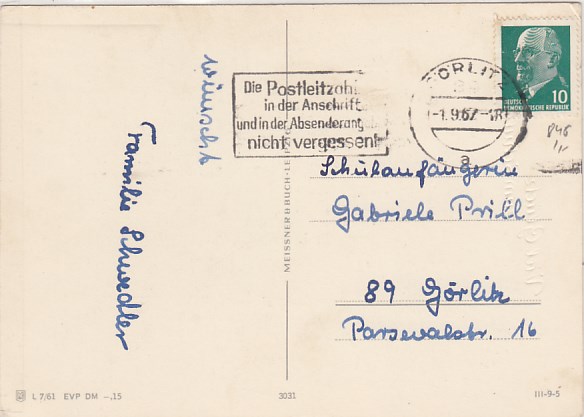 wünscht
Familie Schwedler
Die Postleitzahl
in der Anschrift
und in der Absenderang
nicht vergessen!
GÖRLITZ
-1.9.67.-18
a
DEUTSCHE
DEMOKRATISCHE REPUBLIK
10
MEISSNER & BUCH · LEIPZIG
Schulanfängerin
Gabriele Prill
89 Görlitz
Parsevalstr. 16
L 7/61 EVP DM -,15
3031
III-9-5